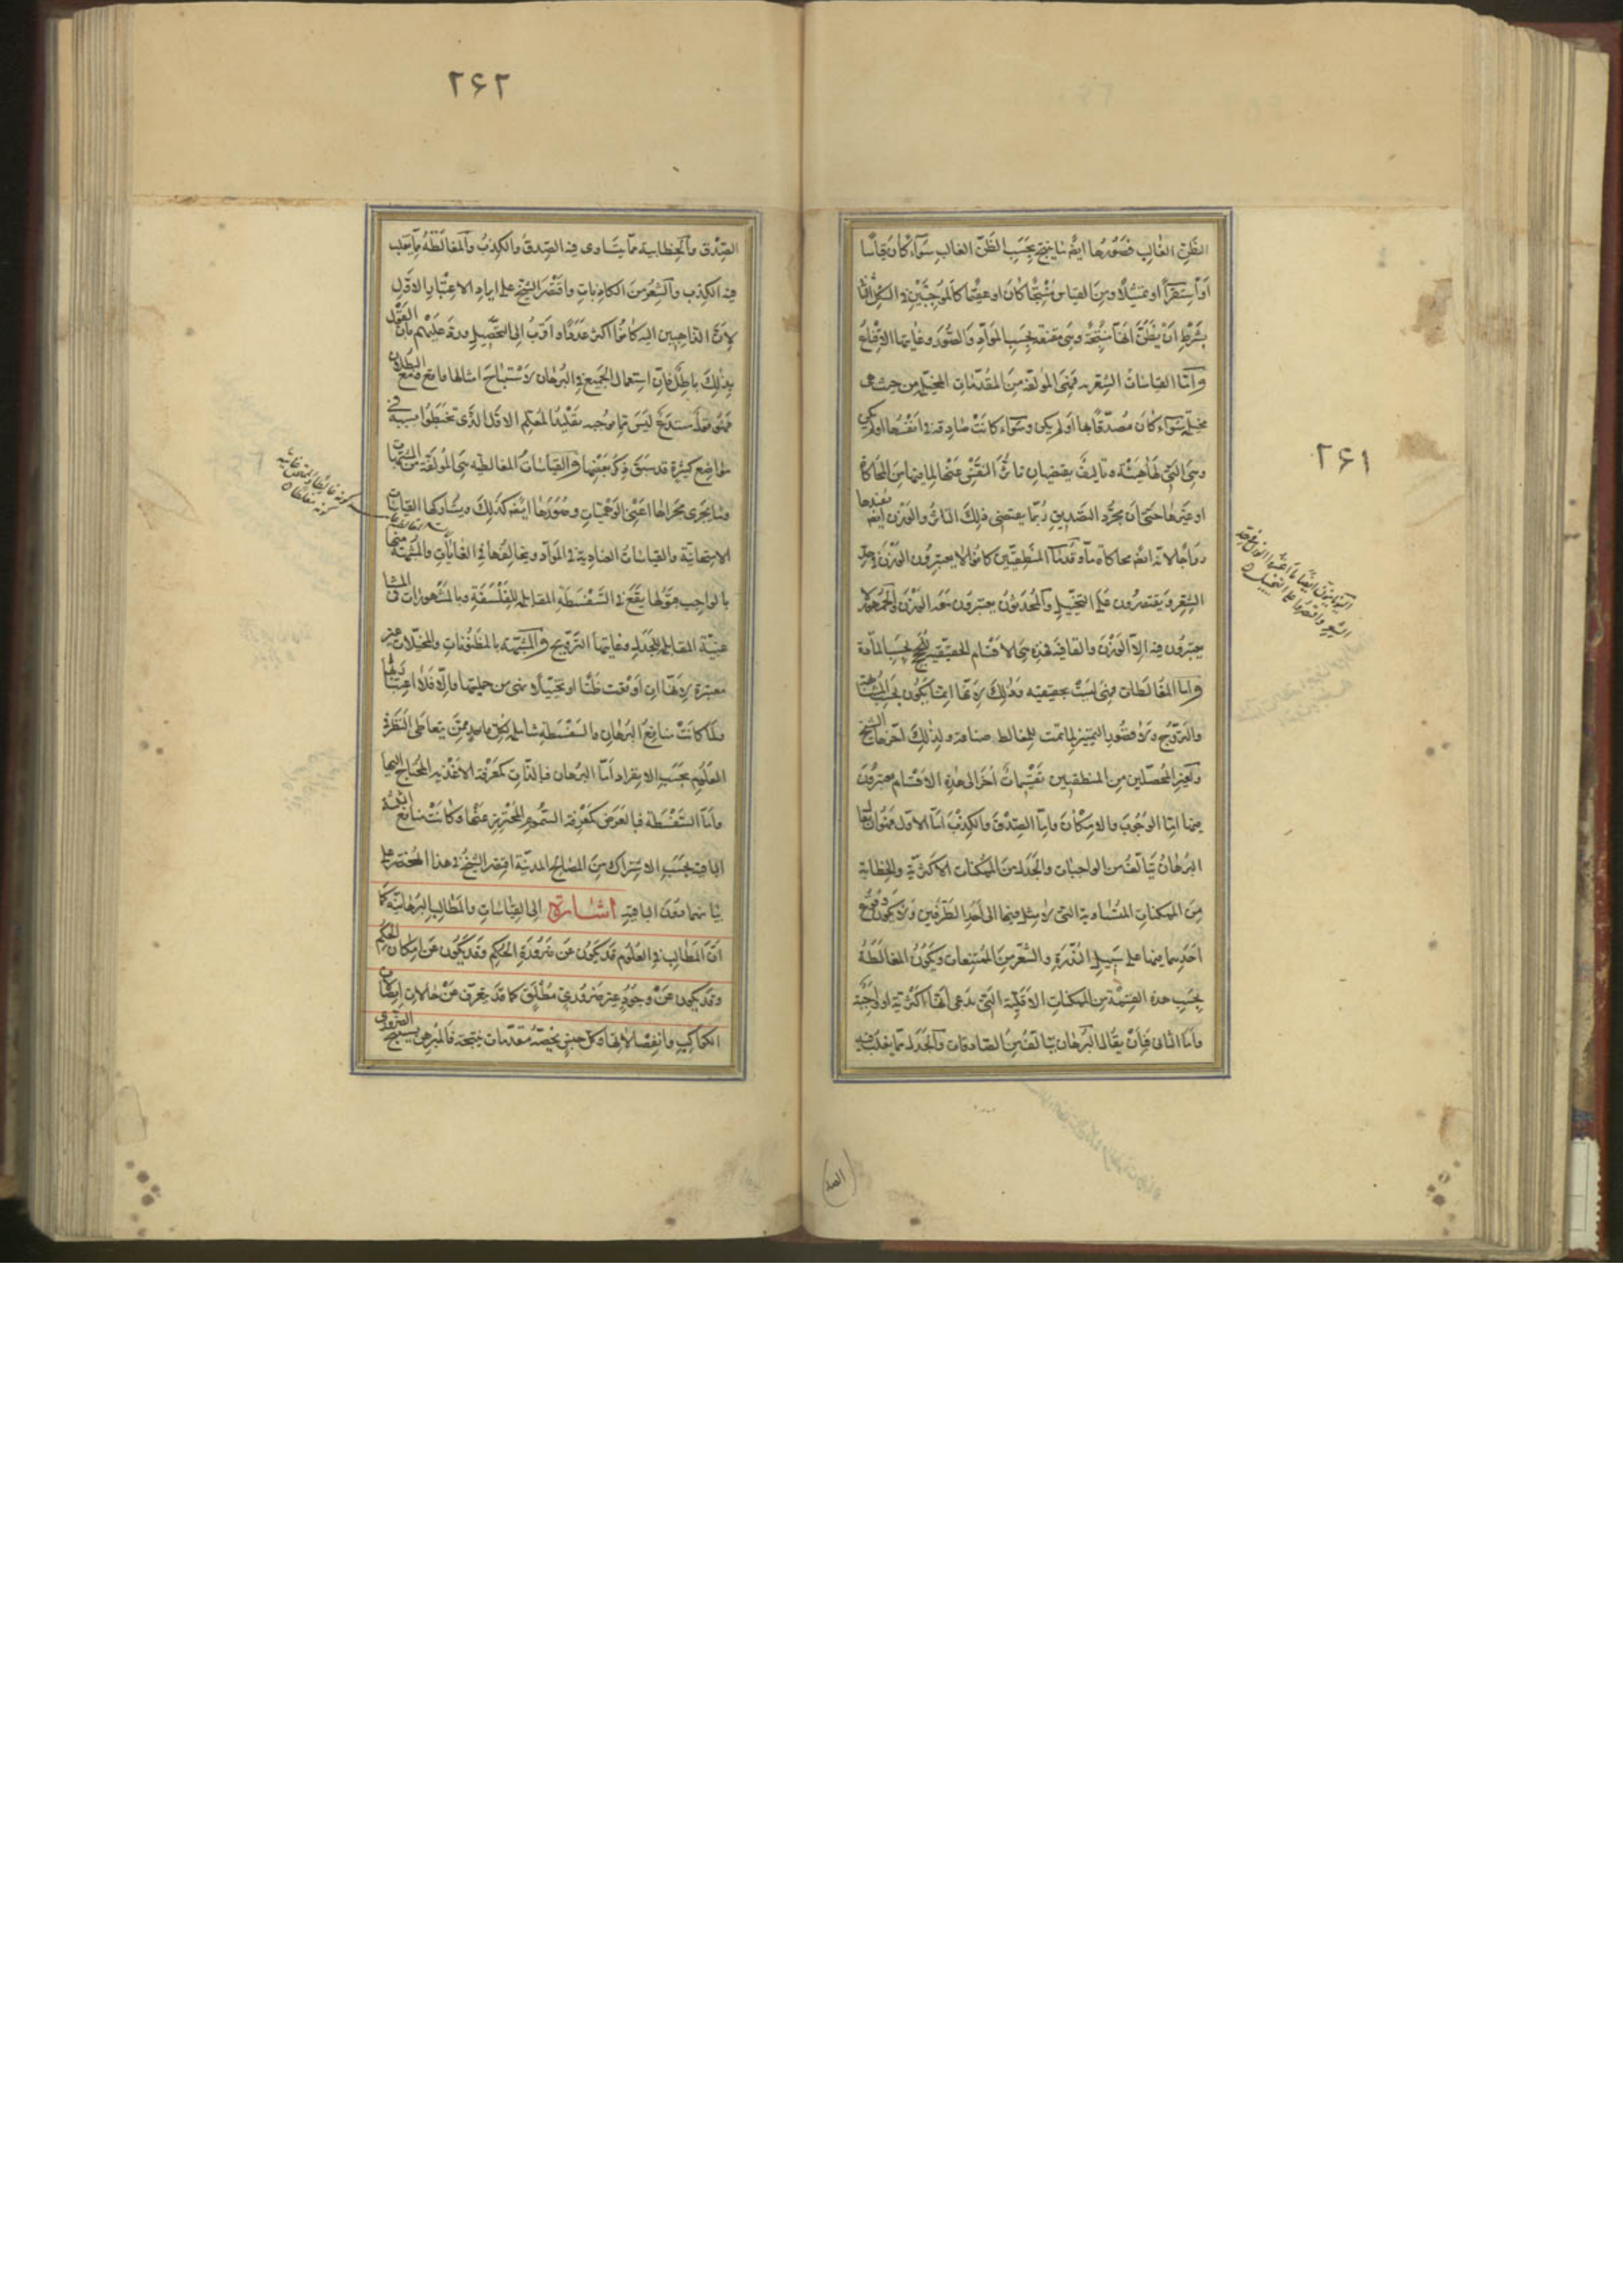 ٢۶١
الظَّنِّ الغالِب فَصُوَرُها ايضًا ما ينتج بحَسَبِ الظَّنِّ الغالِب سَوآء كانَ قياسًا
اَوْ اِسْتِقرآءً او تمثيلًا ومِنَ القياسِ مُنتِجًا كانَ او عقيمًا كالموجبتَيْنِ فى الشكل الثانى
بشَرْطِ اَنْ يُظَنَّ انها مُنتِجَة وهى مقنعة بحسَبِ المَوادِّ والصُّوَر وغايتها الاِقناعُ
وامّا القياسَاتُ الشِعْرية فهِىَ المؤلّفة مِنَ المقدّماتِ المخيّلة من حيث هى
مخيلة سَوآء كانَ مُصدّقًا بها اَو لم يكن وسَوآء كانَتْ صادِقة فى اَنفُسها اولم يكن
وهِىَ الّتى لها هَيْئَة وتاليفٌ يقتضيان تاثُّر النَفْسِ عَنْها لِما فيها مِنَ المحاكاة
او غيرها حتّى اَن مجرّد التَصْديق رُبّما يقتضى ذلِكَ التاثُّر والوَزْن ايضًا يفيدها
رواجًا لانه ايضًا محاكاة ما وقُدمآء المنطِقيّين كانُوا لا يعتبِرُون الوَزْنَ فى حدّ
الشِعْر ويقتصِرُون عَلى التخييلِ والمُحدَثونَ يعتبِرونَ معه الوَزْن والجمهور لا
يعتبِرُون فيه اِلّا الوَزْنَ والقافية فهذِه هِىَ الاقسام الحقيقيّة للحجج بحسَبِ المادّة
وامّا المغالطات فهِىَ ليسَتْ بحقيقيّة وذلِكَ لانّها انّما يكون بحسب المشابهة
والترويج ولَولا قصُور التمييز لما تمت للمغالط صناعة ولذلِكَ اَخّرها الشيخ
ولغير المُحصّلين مِن المنطقيين تقسيماتٌ اُخَر الى هذِه الاقسَام يعتبِرُون
فيها اِمّا الوُجُوبَ والامْكان وامّا الصِدْقَ والكِذْبَ امّا الاوّل فهوان يقال
البُرهانُ يتالّفُ من الواجبات والجَدَل من الممكنات الاكثريّة والخطابة
مِنَ الممكناتِ المتساوية التى لا ميل فيها الى اَحَدِ الطرفين ولا يكون وقوع
اَحَدِهِما فيها على سَبيلِ النُدْرة والشِعْر مِنَ الممتنعات ويكونُ المغالطة
بحسب هذه القِسْمة مِن الممكنات الاقليّة التى يدعى اَنّها اكثرية او واجبة
وامّا الثانى فاَنْ يُقال البُرهان يتالّف مِن الصادقات والجَدَل ممّا يغلب فيه
اليونانيون ايضًا
الشعر واقتصروا على التخييل
الصد
٢۶٢
الصِدْق والخطابية ممّا يتساوى فيه الصِدقُ والكِذبُ والمغالطةُ ممّا يغلب
فيه الكِذب والشِعْر مِنَ الكاذِبات واقتصَر الشيخ على ايراد الاعتبار الاوّلِ
لِاَنَّ الذاهبين اليه كانُوا اكثر عَدَدًا واقرب الى التحصيل وردّ عَليْهِم بان القَوْل
بذلِكَ باطِل فاِن استعمال الجميع فى البُرهان لاسْتنتاج امثالها واقع ومع البطلان
فهوقول مستدع ليسَ مما يوجبه تقليدًا المُعلّم الاوّل الذّى تخبّطوا بسَببه فى
مَواضِع كثيرة قد سَبَق ذِكرُ بَعْضِها والقياسَاتُ المغالطيّة هِىَ المؤلّفة من المشبّهات
وما يجرى مجراها اعنى الوهميّات وصُورُها ايضًا كذلِك ويشاركها القياسات
الامتحانيّة والقياسات العنادية فى المَوادّ ويخالِفها فى الغايات والمشبهة منها
بالواجِب قبولها يَقَع فى السَفسَطة المقابلة للفلسَفَةِ وبالمشهورات فى المشا
غبيّة المقابلة للجدلِ وغايتها الترويج والمشبّهة بالمظنُونات والمخيّلات غير
معتبرة لِانّها اِن اَوقعَت ظنًّا او تخييلًا فهى من جملتها والّا فلا اعتبار لها
ولمّا كانَتْ منافِعُ البُرهان والسَفْسَطةِ شاملة لكل واحدٍ ممَّن يتعاطى النَظَر فى
العلُوم بحسَبِ الانفراد اَمّا البُرهان فبالذّاتِ كمعرفة الاغذية المحتاج اليها
وامّا السَفْسَطة فبالعَرَض كمَعْرفة السُّمومِ المُحترز عَنْها وكانتْ منافع الثلثة
الباقية بحسَبِ الاشتِراك مِنَ المصالح المدنيّة اقتصَر الشيخ فى هذا المختصَر على
بيانهما دُونَ الباقية اشارة الى القياسَاتِ والمَطالِب البُرهانيّة كما
انّ المَطالِب فى العلُوم قد يكُون عَن ضرُورة الحُكم وقد يكُون عَن اِمكان الحُكم
وقد يكون عَنْ وجودٍ غير ضرُورىّ مُطلق كما قد يتعرّف عَنْ حالات اتّصالات
الكواكِب وانفِصالاتها وكلّ جنس يخصّه مُقدّمات ونتيجة فالمُبرهِن يستنتج الضرورى